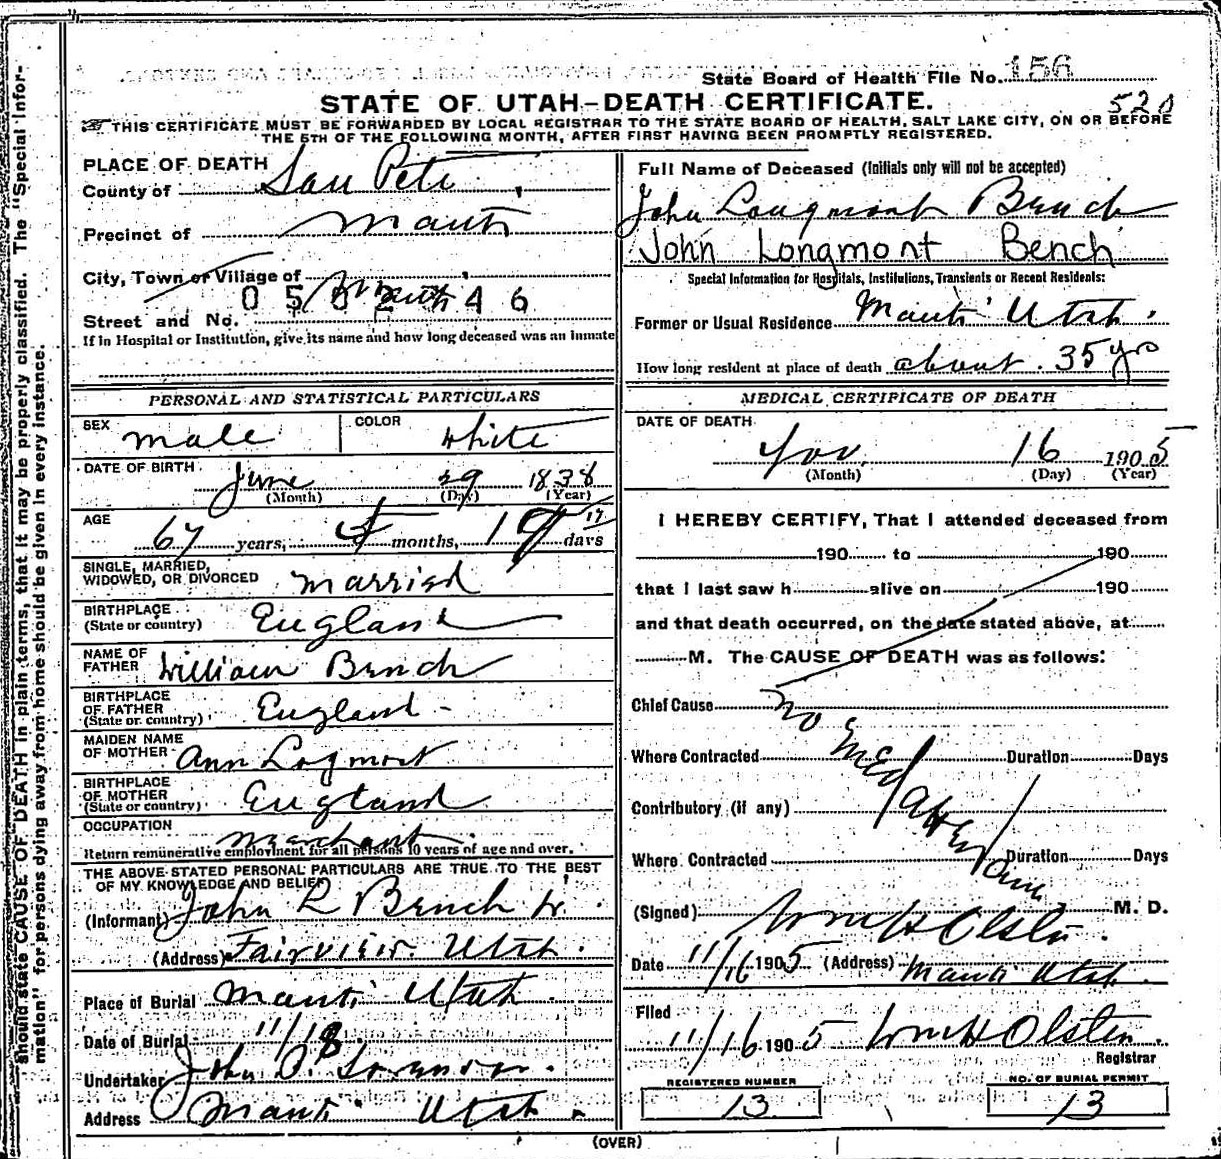 State Board of Health File No. 156
520
STATE OF UTAH-DEATH CERTIFICATE.
THIS CERTIFICATE MUST BE FORWARDED BY LOCAL REGISTRAR TO THE STATE BOARD OF HEALTH, SALT LAKE CITY, ON OR BEFORE
THE 5TH OF THE FOLLOWING MONTH, AFTER FIRST HAVING BEEN PROMPTLY REGISTERED.
PLACE OF DEATH
County of San Pete
Precinct of Manti
City, Town or Village of Manti
0 5 0 2 4 6
Street and No.
If in Hospital or Institution, give its name and how long deceased was an inmate
Full Name of Deceased (Initials only will not be accepted)
John Longmont Bench
John Longmont Bench
Special Information for Hospitals, Institutions, Transients or Recent Residents:
Former or Usual Residence Manti Utah.
How long resident at place of death about 35 yrs
PERSONAL AND STATISTICAL PARTICULARS
SEX male COLOR white
DATE OF BIRTH June 29 1838
(Month) (Day) (Year)
AGE 67 years, 4 months, 17 days
17
SINGLE, MARRIED,
WIDOWED, OR DIVORCED married
BIRTHPLACE
(State or country) England
NAME OF
FATHER William Bench
BIRTHPLACE
OF FATHER
(State or country) England
MAIDEN NAME
OF MOTHER Ann Logmort
BIRTHPLACE
OF MOTHER
(State or country) England
OCCUPATION merchant.
Return remunerative employment for all persons 10 years of age and over.
THE ABOVE STATED PERSONAL PARTICULARS ARE TRUE TO THE BEST
OF MY KNOWLEDGE AND BELIEF
(Informant) John L Bench Jr.
(Address) Fairview. Utah.
Place of Burial Manti Utah.
Date of Burial 11/18
Undertaker John
Address Manti Utah.
MEDICAL CERTIFICATE OF DEATH
DATE OF DEATH
Nov. 16 1905
(Month) (Day) (Year)
I HEREBY CERTIFY, That I attended deceased from
190 to 190
that I last saw h alive on 190
and that death occurred, on the date stated above, at
M. The CAUSE OF DEATH was as follows:
Chief Cause
no med atten
Where Contracted Duration Days
Contributory (if any)
Where Contracted Duration Days
(Signed) Wm H Olsten. M. D.
Date 11/16 1905 (Address) Manti Utah.
Filed
11/16 1905 Wm H Olsten.
Registrar
REGISTERED NUMBER
13
NO. OF BURIAL PERMIT
13
(OVER)
should state CAUSE OF DEATH in plain terms, that it may be properly classified. The "Special Infor-
mation" for persons dying away from home should be given in every instance.